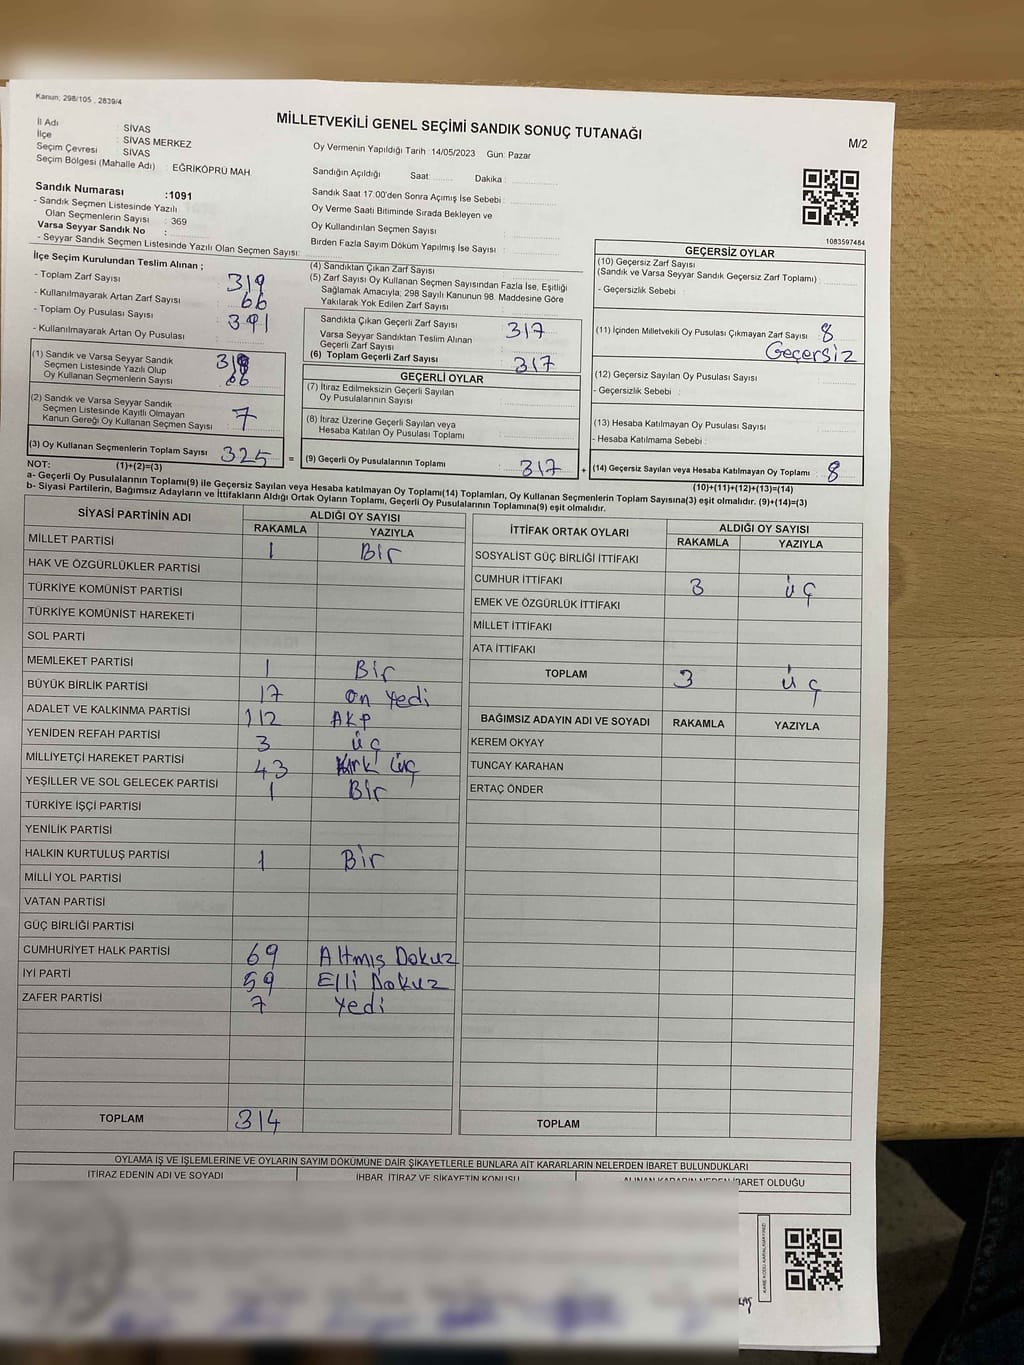 Kanun; 298/105 , 2839/4
MİLLETVEKİLİ GENEL SEÇİMİ SANDIK SONUÇ TUTANAĞI
M/2
İl Adı : SİVAS
İlçe : SİVAS MERKEZ
Seçim Çevresi : SİVAS
Seçim Bölgesi (Mahalle Adı) : EĞRİKÖPRÜ MAH.
Sandık Numarası :1091
- Sandık Seçmen Listesinde Yazılı
Olan Seçmenlerin Sayısı : 369
Varsa Seyyar Sandık No :
- Seyyar Sandık Seçmen Listesinde Yazılı Olan Seçmen Sayısı:
Oy Vermenin Yapıldığı Tarih :14/05/2023 Gün: Pazar
Sandığın Açıldığı Saat: Dakika :
Sandık Saat 17:00'den Sonra Açımış İse Sebebi :
Oy Verme Saati Bitiminde Sırada Bekleyen ve
Oy Kullandırılan Seçmen Sayısı :
Birden Fazla Sayım Döküm Yapılmış İse Sayısı :
1083597484
İlçe Seçim Kurulundan Teslim Alınan ;
- Toplam Zarf Sayısı : 319
- Kullanılmayarak Artan Zarf Sayısı : 66
- Toplam Oy Pusulası Sayısı : 391
- Kullanılmayarak Artan Oy Pusulası :
(1) Sandık ve Varsa Seyyar Sandık
Seçmen Listesinde Yazılı Olup
Oy Kullanan Seçmenlerin Sayısı
(2) Sandık ve Varsa Seyyar Sandık
Seçmen Listesinde Kayıtlı Olmayan
Kanun Gereği Oy Kullanan Seçmen Sayısı : 7
(3) Oy Kullanan Seçmenlerin Toplam Sayısı : 325 =
(4) Sandıktan Çıkan Zarf Sayısı :
(5) Zarf Sayısı Oy Kullanan Seçmen Sayısından Fazla İse, Eşitliği
Sağlamak Amacıyla; 298 Sayılı Kanunun 98. Maddesine Göre
Yakılarak Yok Edilen Zarf Sayısı :
Sandıkta Çıkan Geçerli Zarf Sayısı : 317
Varsa Seyyar Sandıktan Teslim Alınan
Geçerli Zarf Sayısı :
(6) Toplam Geçerli Zarf Sayısı : 317
GEÇERLİ OYLAR
(7) İtiraz Edilmeksizin Geçerli Sayılan
Oy Pusulalarının Sayısı :
(8) İtiraz Üzerine Geçerli Sayılan veya
Hesaba Katılan Oy Pusulası Toplamı :
(9) Geçerli Oy Pusulalarının Toplamı : 317 +
GEÇERSİZ OYLAR
(10) Geçersiz Zarf Sayısı
(Sandık ve Varsa Seyyar Sandık Geçersiz Zarf Toplamı) :
- Geçersizlik Sebebi :
(11) İçinden Milletvekili Oy Pusulası Çıkmayan Zarf Sayısı : 8
Geçersiz
(12) Geçersiz Sayılan Oy Pusulası Sayısı :
- Geçersizlik Sebebi :
(13) Hesaba Katılmayan Oy Pusulası Sayısı :
- Hesaba Katılmama Sebebi :
(14) Geçersiz Sayılan veya Hesaba Katılmayan Oy Toplamı : 8
NOT: (1)+(2)=(3)
(10)+(11)+(12)+(13)=(14)
a- Geçerli Oy Pusulalarının Toplamı(9) ile Geçersiz Sayılan veya Hesaba Katılmayan Oy Toplamı(14) Toplamları, Oy Kullanan Seçmenlerin Toplam Sayısına(3) eşit olmalıdır. (9)+(14)=(3)
b- Siyasi Partilerin, Bağımsız Adayların ve İttifakların Aldığı Ortak Oyların Toplamı, Geçerli Oy Pusulalarının Toplamına(9) eşit olmalıdır.
SİYASİ PARTİNİN ADI ALDIĞI OY SAYISI
RAKAMLA YAZIYLA
MİLLET PARTİSİ 1 Bir
HAK VE ÖZGÜRLÜKLER PARTİSİ
TÜRKİYE KOMÜNİST PARTİSİ
TÜRKİYE KOMÜNİST HAREKETİ
SOL PARTİ
MEMLEKET PARTİSİ 1 Bir
BÜYÜK BİRLİK PARTİSİ 17 on yedi
ADALET VE KALKINMA PARTİSİ 112 AKP
YENİDEN REFAH PARTİSİ 3 üç
MİLLİYETÇİ HAREKET PARTİSİ 43 Kırk üç
YEŞİLLER VE SOL GELECEK PARTİSİ 1 Bir
TÜRKİYE İŞÇİ PARTİSİ
YENİLİK PARTİSİ
HALKIN KURTULUŞ PARTİSİ 1 Bir
MİLLİ YOL PARTİSİ
VATAN PARTİSİ
GÜÇ BİRLİĞİ PARTİSİ
CUMHURİYET HALK PARTİSİ 69 Altmış Dokuz
İYİ PARTİ 59 Elli Dokuz
ZAFER PARTİSİ 7 Yedi
TOPLAM 314
İTTİFAK ORTAK OYLARI ALDIĞI OY SAYISI
RAKAMLA YAZIYLA
SOSYALİST GÜÇ BİRLİĞİ İTTİFAKI
CUMHUR İTTİFAKI 3 üç
EMEK VE ÖZGÜRLÜK İTTİFAKI
MİLLET İTTİFAKI
ATA İTTİFAKI
TOPLAM 3 üç
BAĞIMSIZ ADAYIN ADI VE SOYADI RAKAMLA YAZIYLA
KEREM OKYAY
TUNCAY KARAHAN
ERTAÇ ÖNDER
TOPLAM
OYLAMA İŞ VE İŞLEMLERİNE VE OYLARIN SAYIM DÖKÜMÜNE DAİR ŞİKAYETLERLE BUNLARA AİT KARARLARIN NELERDEN İBARET BULUNDUKLARI
İTİRAZ EDENİN ADI VE SOYADI İHBAR, İTİRAZ VE ŞİKAYETİN KONUSU ALINAN KARARIN NEDEN İBARET OLDUĞU